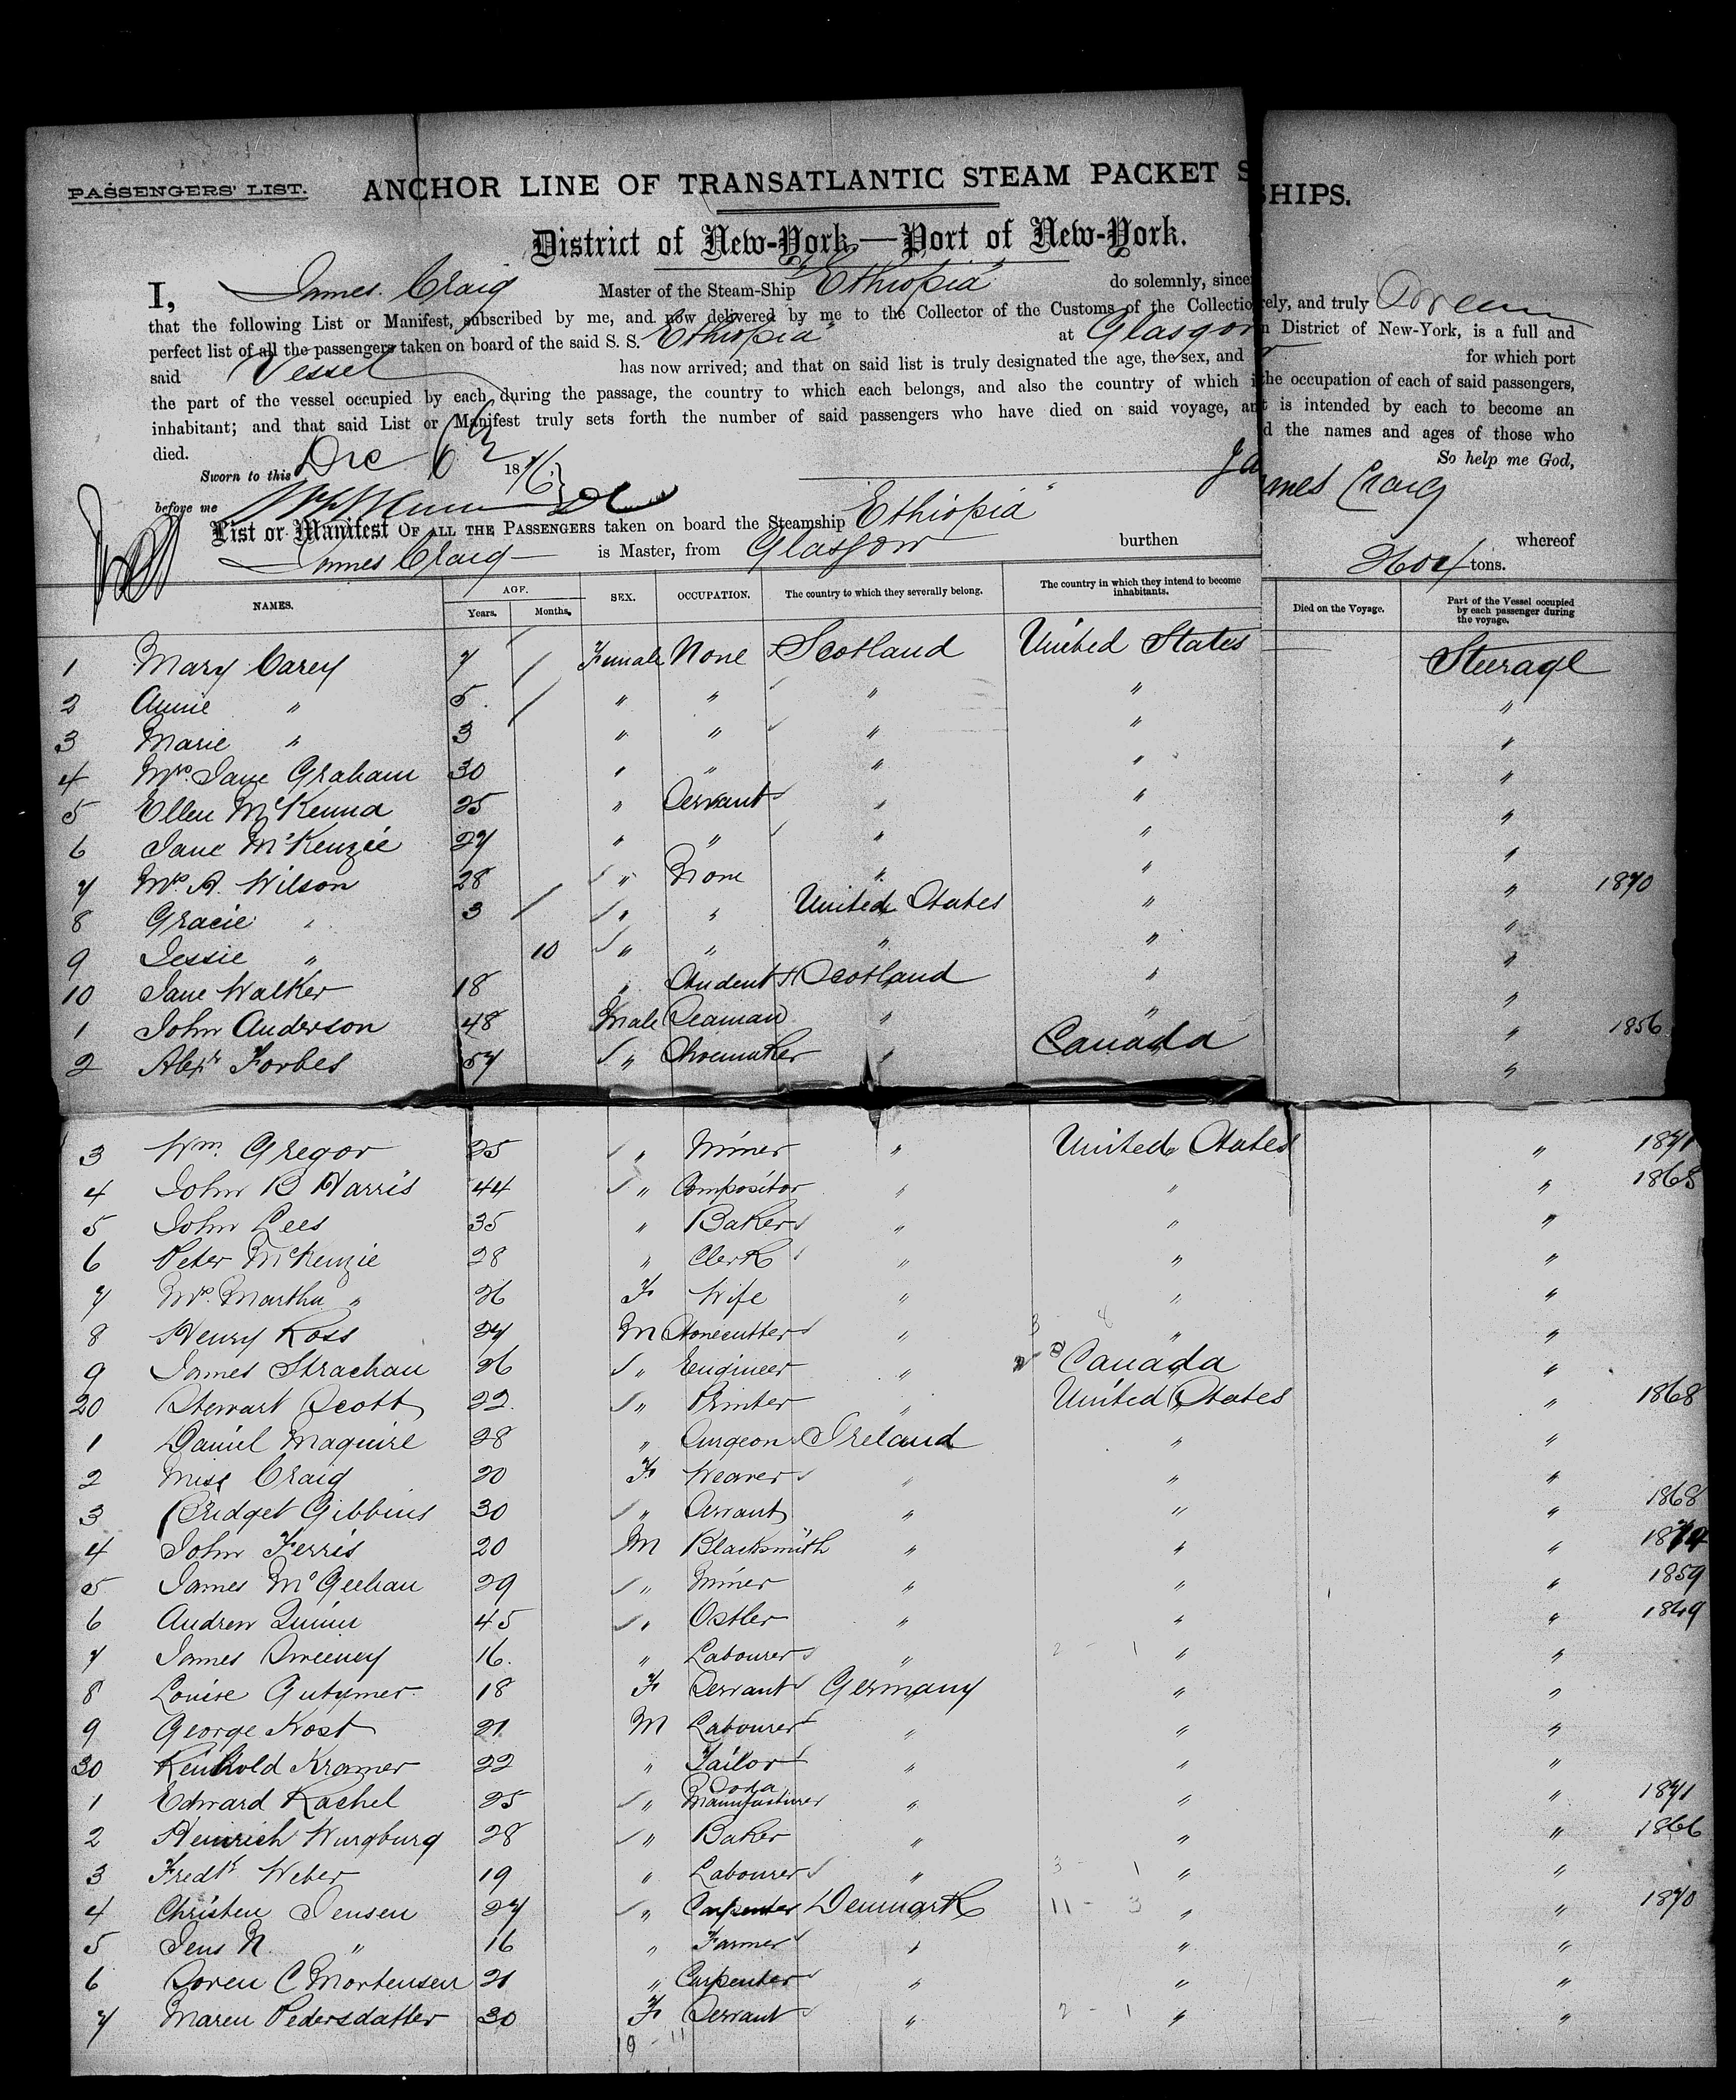 PASSENGERS' LIST. ANCHOR LINE OF TRANSATLANTIC STEAM PACKET SHIPS.
District of New-York,—Port of New-York.
I, James Craig Master of the Steam-Ship "Ethiopia" do solemnly, sincerely, and truly Swear
that the following List or Manifest, subscribed by me, and now delivered by me to the Collector of the Customs of the Collection District of New-York, is a full and
perfect list of all the passengers taken on board of the said S. S. Ethiopia" at Glasgow for which port
said Vessel has now arrived; and that on said list is truly designated the age, the sex, and the occupation of each of said passengers,
the part of the vessel occupied by each during the passage, the country to which each belongs, and also the country of which it is intended by each to become an
inhabitant; and that said List or Manifest truly sets forth the number of said passengers who have died on said voyage, and the names and ages of those who
died. So help me God,
Sworn to this Dec 6th 1876 James Craig
before me
List or Manifest OF ALL THE PASSENGERS taken on board the Steamship Ethiopia" whereof
James Craig is Master, from Glasgow burthen tons.
NAMES. AGE. Years. Months. SEX. OCCUPATION. The country to which they severally belong. The country in which they intend to become inhabitants. Died on the Voyage. Part of the Vessel occupied by each passenger during the voyage.
1 Mary Carey 7 Female None Scotland United States Steerage
2 Annie " 5 " " " " "
3 Marie " 3 " " " " "
4 Mrs. Jane Graham 30 " " " " "
5 Ellen McKenna 25 " Servant " " "
6 Jane McKenzie 27 " " " " "
7 Mrs A. Wilson 28 " None " " " 1870
8 Gracie " 3 " " United States " "
9 Jessie " 10 " " " " "
10 Jane Walker 18 " Student Scotland " "
1 John Anderson 48 Male Seaman " " " 1856
2 Alexr Forbes 57 " Shoemaker " Canada "
3 Wm. Gregor 25 " Miner " United States " 1871
4 John B Harris 44 " Compositor " " " 1868
5 John Lees 35 " Baker " " "
6 Peter McKenzie 28 " Clerk " " "
7 Mrs. Martha " 26 F Wife " " "
8 Henry Ross 27 M Stonecutter " " "
9 James Strachan 26 " Engineer " Canada "
20 Stewart Scott 22 " Printer " United States " 1868
1 Daniel Maguire 28 " Surgeon Ireland " "
2 Miss Craig 20 F Weaver " " "
3 Bridget Gibbins 30 " Servant " " " 1868
4 John Ferris 20 M Blacksmith " " " 1874
5 James McGeehan 29 " Miner " " " 1859
6 Andrew Quinn 45 " Ostler " " " 1849
7 James Sweeney 16. " Labourer " " "
8 Louise Gutymer 18 F Servant Germany " "
9 George Kost 21 M Labourer " " "
30 Reinhold Kramer 22 " Tailor " " "
1 Edward Rachel 25 " Soda Manufacturer " " " 1871
2 Heinrich Wurgburg 28 " Baker " " " 1866
3 Fredk Weber 19 " Labourer " " "
4 Christen Jensen 27 " Carpenter Denmark " " 1870
5 Jens N. " 16 " Farmer " " "
6 Soren C Mortensen 21 " Carpenter " " "
7 Maren Pedersdatter 30 F Servant " " "
19 - 11